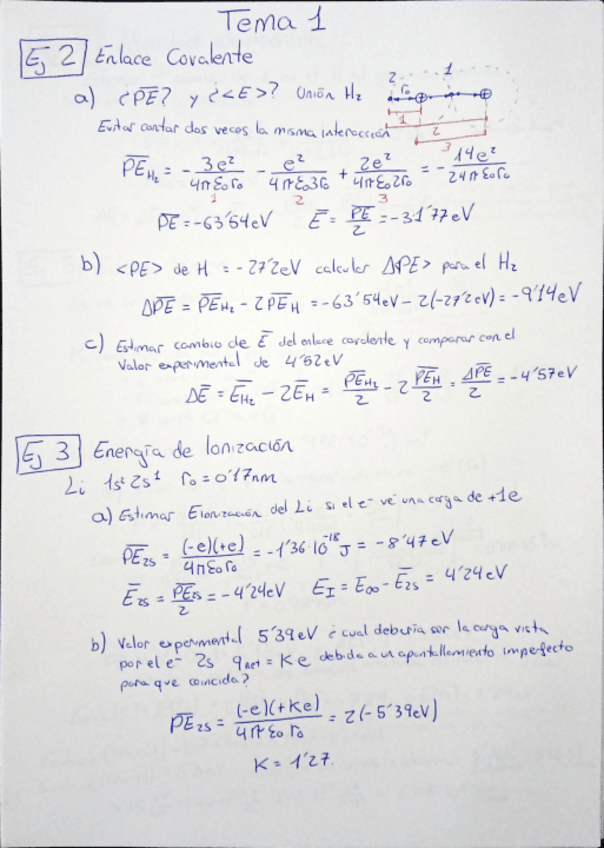 Tema 1
Ej 2 Enlace Covalente
a) ¿P̅E̅? y ¿<E>? Unión H₂
2 r₀ 1
1
2
3
Evitar contar dos veces la misma interacción
P̅E̅_H₂ = - 3e²/4πε₀r₀ - e²/4πε₀3r₀ + 2e²/4πε₀2r₀ = - 14e²/24πε₀r₀
1 2 3
P̅E̅ = -63'54eV E̅ = P̅E̅/2 = -31'77eV
b) <PE> de H = -27'2eV calcular Δ<PE> para el H₂
ΔP̅E̅ = P̅E̅_H₂ - 2P̅E̅_H = -63'54eV - 2(-27'2eV) = -9'14eV
c) Estimar cambio de E̅ del enlace covalente y comparar con el
valor experimental de 4'52eV
ΔE̅ = E̅_H₂ - 2E̅_H = P̅E̅_H₂/2 - 2 P̅E̅_H/2 = ΔP̅E̅/2 = -4'57eV
Ej 3 Energía de Ionización
Li 1s² 2s¹ r₀ = 0'17nm
a) Estimar Eionización del Li si el e⁻ ve una carga de +1e
P̅E̅_2s = (-e)(+e)/4πε₀r₀ = -1'36·10⁻¹⁸ J = -8'47eV
E̅_2s = P̅E̅_2s/2 = -4'24eV E_I = E_∞ - E̅_2s = 4'24eV
b) Valor experimental 5'39eV ¿cual debería ser la carga vista
por el e⁻ 2s q_net = Ke debida a un apantallamiento imperfecto
para que coincida?
P̅E̅_2s = (-e)(+Ke)/4πε₀r₀ = 2(-5'39eV)
K = 1'27.